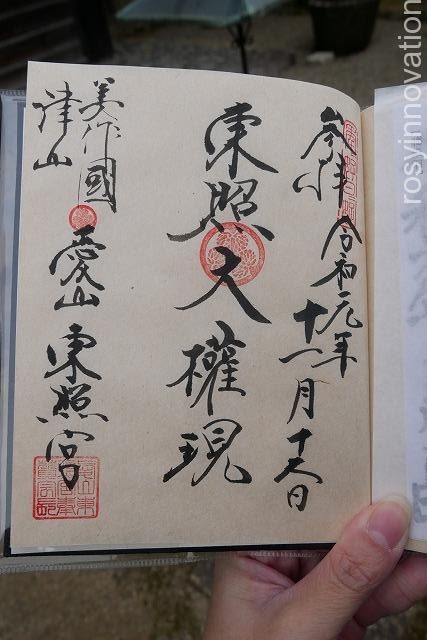 参拝 令和元年
十一月十六日
東照大権現
美作國
津山
愛山東照宮
rosyinnovation